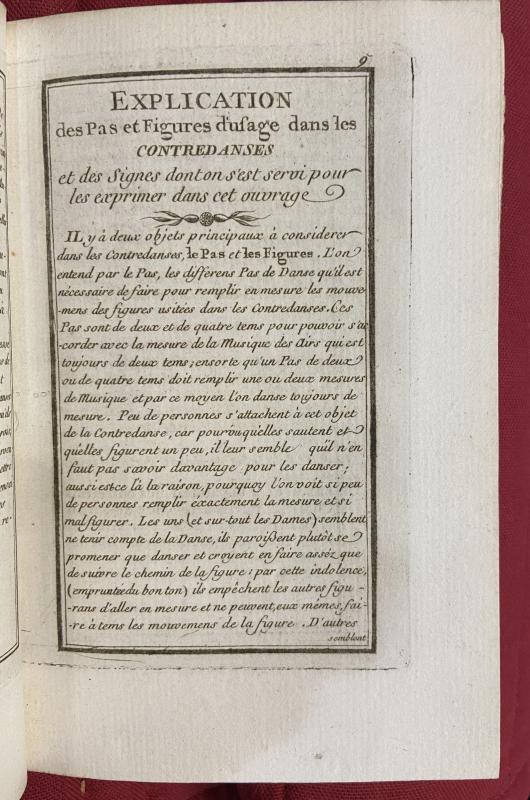 9
EXPLICATION
des Pas et Figures d'usage dans les
CONTREDANSES
et des Signes dont on s'est servi pour
les exprimer dans cet ouvrage
IL y à deux objets principaux à considerer
dans les Contredanses, le Pas et les Figures. L'on
entend par le Pas, les différens Pas de Danse qu'il est
nécessaire de faire pour remplir en mesure les mouve
-mens des figures usitées dans les Contredanses. Ces
Pas sont de deux et de quatre tems pour pouvoir s'ac
-corder avec la mesure de la Musique des Airs qui est
toujours de deux tems; ensorte qu'un Pas de deux
ou de quatre tems doit remplir une ou deux mesures
de Musique et par ce moyen l'on danse toujours de
mesure. Peu de personnes s'attachent à cet objet
de la Contredanse, car pourvu qu'elles sautent et
qu'elles figurent un peu, il leur semble qu'il n'en
faut pas savoir davantage pour les danser;
aussi est-ce là la raison, pourquoy l'on voit si peu
de personnes remplir éxactement la mesure et si
mal figurer. Les uns (et sur-tout les Dames) semblent
ne tenir compte de la Danse, ils paroissent plutôt se
promener que danser et croyent en faire asséz que
de suivre le chemin de la figure: par cette indolence,
(empruntée du bon ton) ils empêchent les autres figu-
-rans d'aller en mesure et ne peuvent, eux mêmes, fai-
-re à tems les mouvemens de la figure. D'autres
semblent